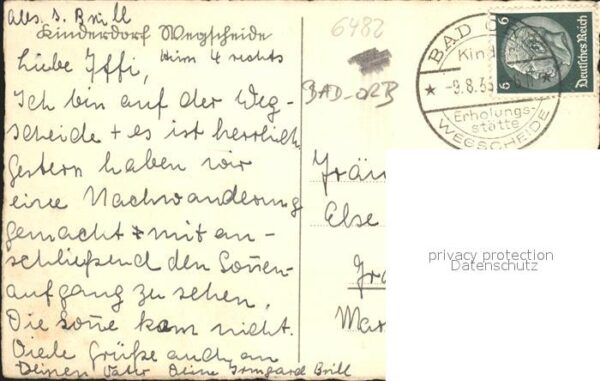 Abs. I. Brill
Kinderdorf Wegscheide
Heim 4 rechts
Liebe Iffi,
Ich bin auf der Weg-
scheide + es ist herrlich.
Gestern haben wir
eine Nachwanderung
gemacht + mit an-
schließend den Sonnen-
aufgang zu sehen.
Die Sonne kam nicht.
Viele Grüße auch an
Deinen Vater Deine Irmgard Brill
6482
BAD-ORB
BAD
Kind
-9.8.3
Erholungs-
stätte
WEGSCHEIDE
6 6
Deutsches Reich
Fräu
Else
Fra
Mar
privacy protection
Datenschutz